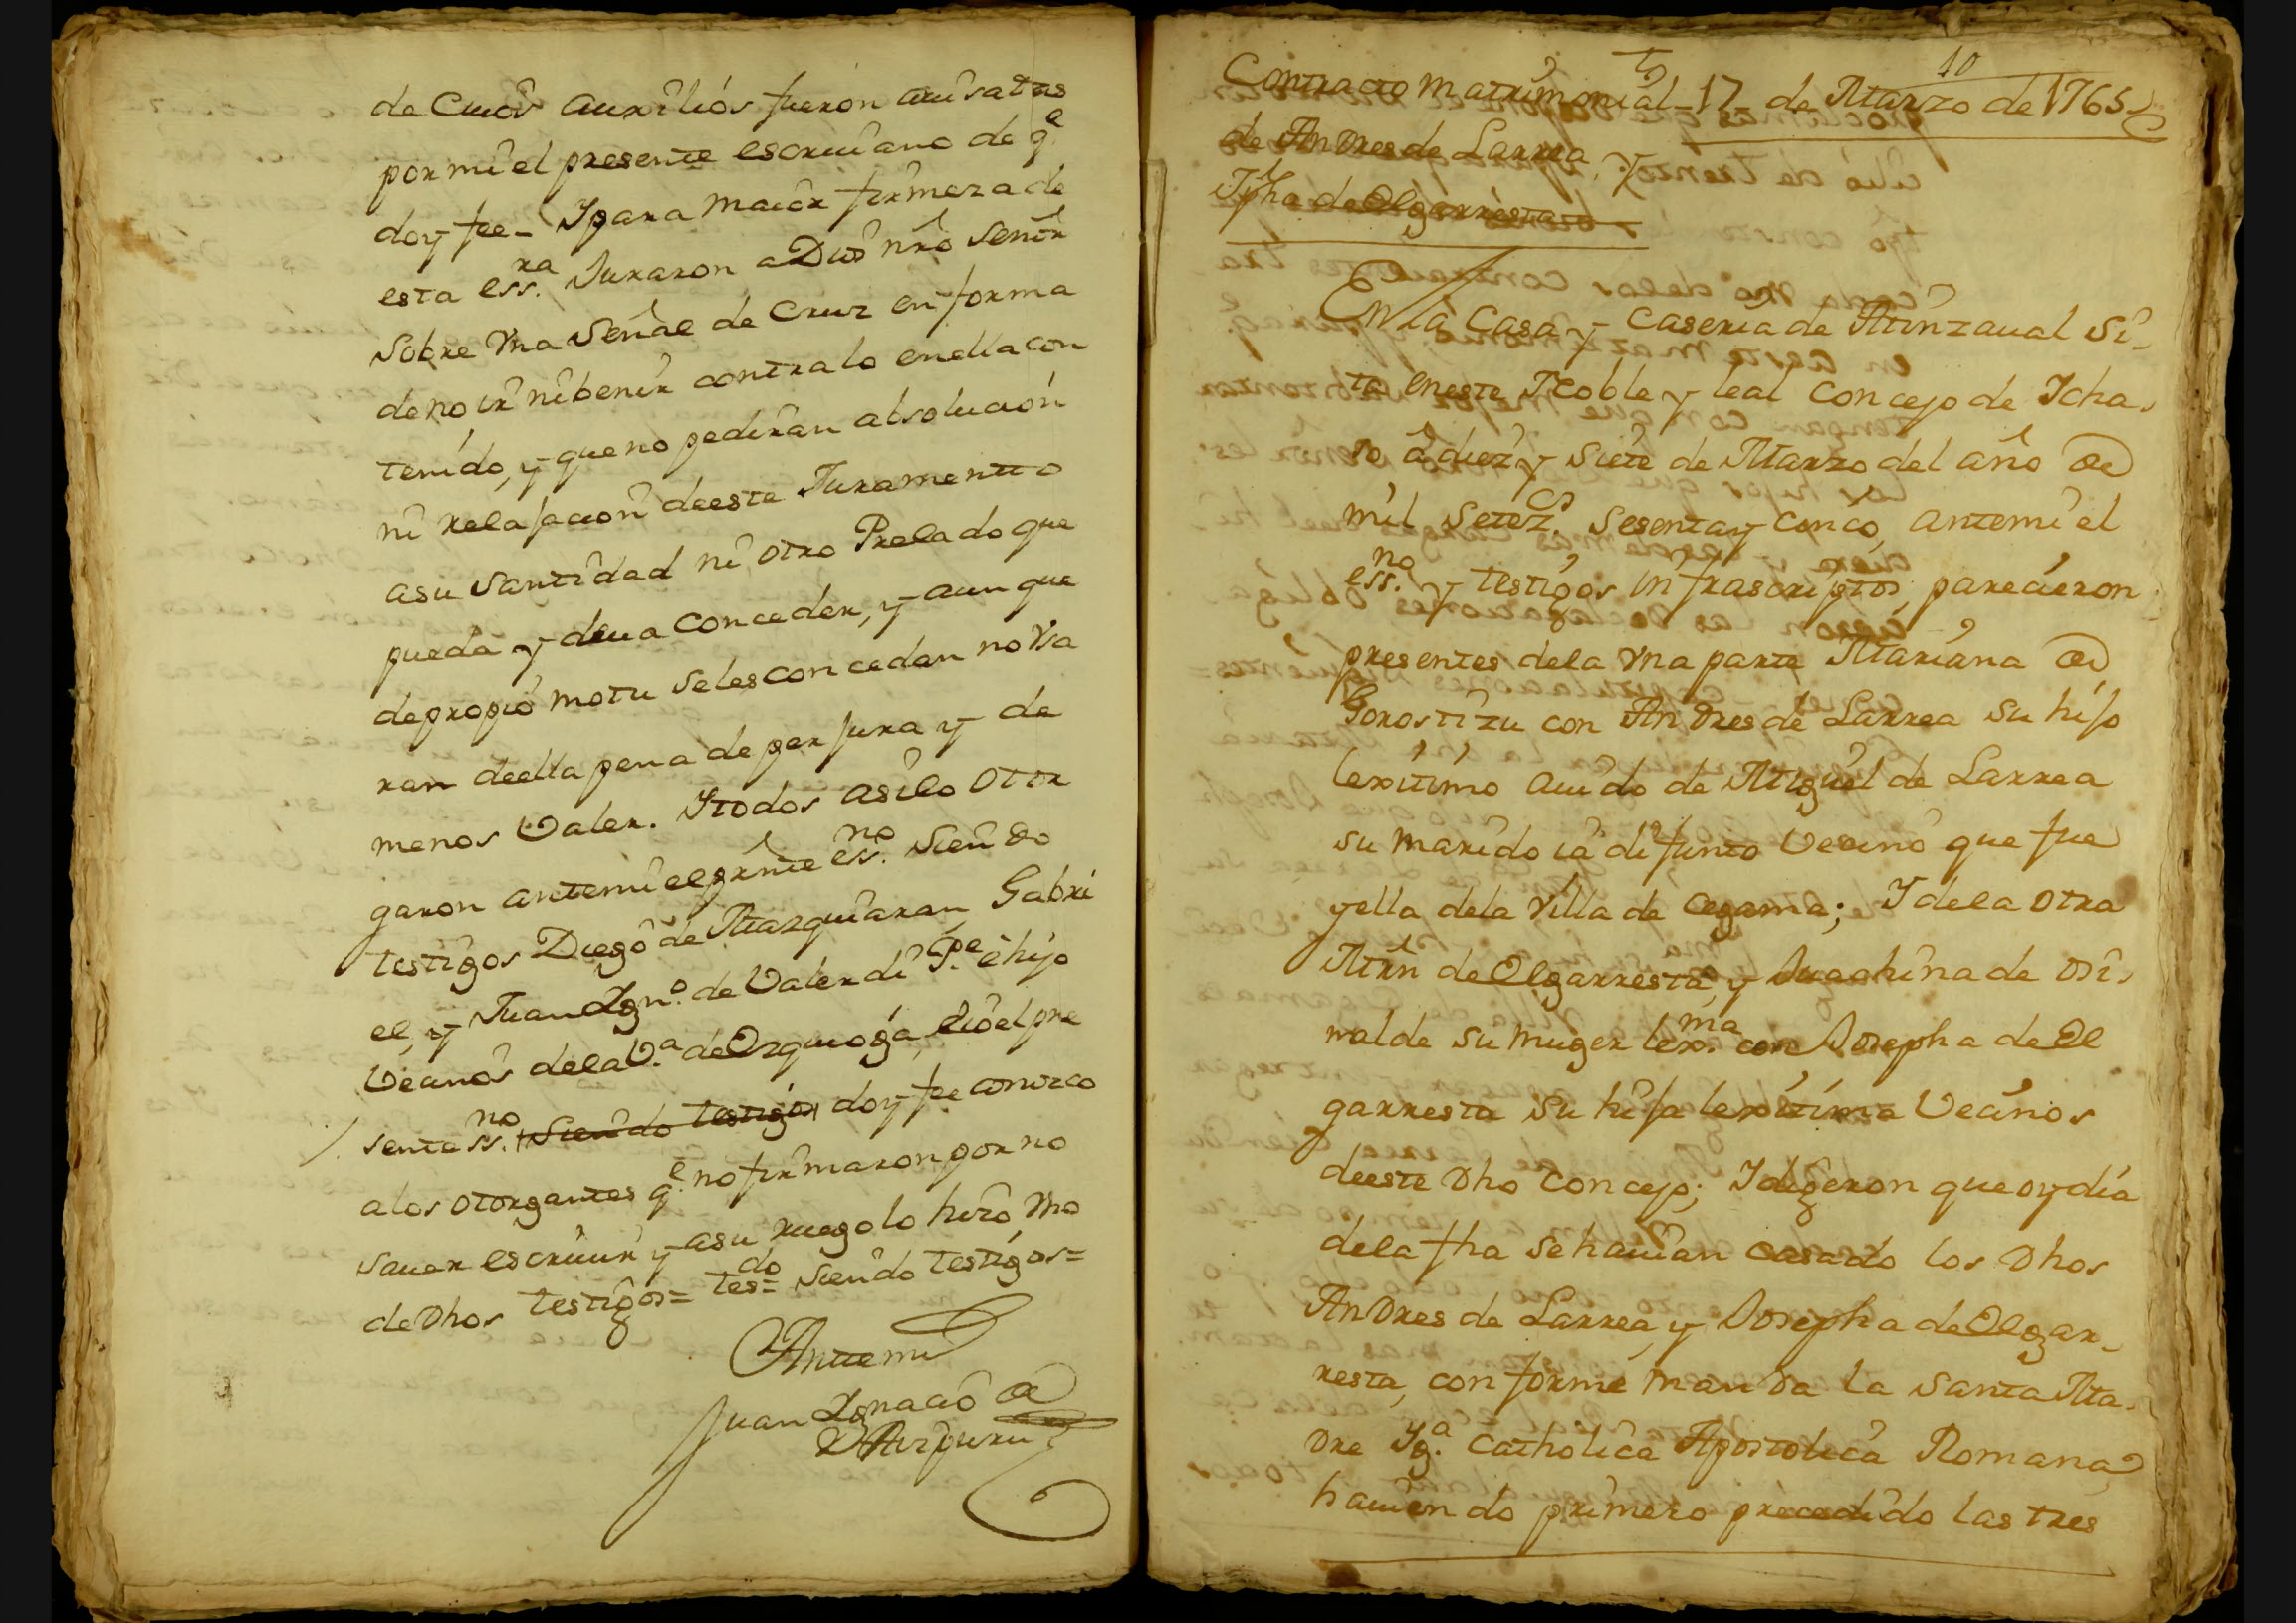 de Cuios auxilios fueron auisatas
por mi el presente escriuano de q.e
doy fee - Y para maior firmeza de
esta ess.ra Juraron a Dios nrô Señor
sobre vna Señal de Cruz en forma
de no ir ni benir contra lo en ella con
tenido, y que no pediràn absolucion
ni relajacion de este Juramento
a su Santidad ni otro Prelado que
pueda y deua conceder, y aunque
de propio motu se les concedan no vsa
ran de ella pena de perjura y de
menos Valer. Y todos asi lo otor
garon ante mi el prnte ess.no siendo
testigos Diego de Marquiaran Gabri
el, y Juan Ign.o de Valerdi P.e è hijo
Vecinos de la V.a de Ezquioga, è io el pre
sente ss.no siendo testigos doy fee conozco
a los otorgantes q.e no firmaron por no
sauer escriuir y a su ruego lo hizo vno
de Dhos testigos = tes.do = siendo testigos =
Ante mi
Juan Ygnacio de
10
Contracto matrimonial - 17 - de Marzo de 1765
de Andres de Larrea, y
Jpha de Elgarresta
En la Casa y Caseria de Minzaual si-
ta en este Noble y leal Concejo de Ycha-
so â diez y siete de Marzo del año de
mil Setez.os Sesenta y Cinco, ante mi el
ess.no y testigos infrascriptos parecieron
presentes de la vna parte Mariana de
Gorostizu con Andres de Larrea su hijo
lexitimo auido de Miguel de Larrea
su marido ia difunto Vecino que fue
y ella de la Villa de Cegama; Y de la otra
Mrñ de Elgarresta, y Juachina de Osi-
nalde su muger lex.ma con Josepha de El
garresta su hija lexitima Vecinos
de este Dho Concejo; Y digeron que oy dia
de la fha se hauian casado los Dhos
Andres de Larrea, y Josepha de Elgar-
resta, conforme manda la Santa Ma-
dre Yg.a Catholica Apostolica Romana
hauiendo primero precedido las tres